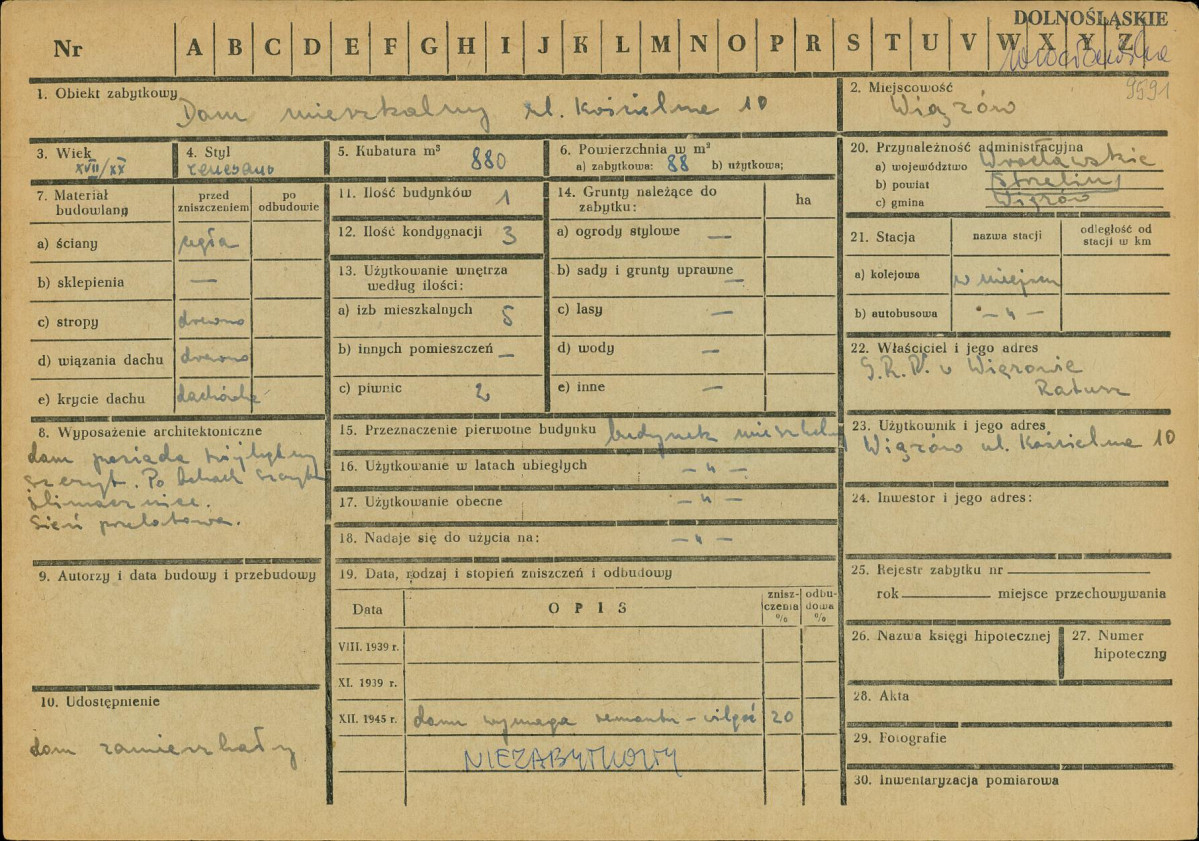 DOLNOŚLĄSKIE
Nr A B C D E F G H I J K L M N O P R S T U V W X Y Z
wrocławskie
9591
1. Obiekt zabytkowy Dom mieszkalny ul. Kościelna 10
2. Miejscowość Wiązów
3. Wiek XVII/XX
4. Styl renesans
5. Kubatura m³ 880
6. Powierzchnia w m²
a) zabytkowa: 88 b) użytkowa;
7. Materiał budowlany
przed zniszczeniem
po odbudowie
a) ściany cegła
b) sklepienia —
c) stropy drewno
d) wiązania dachu drewno
e) krycie dachu dachówka
8. Wyposażenie architektoniczne
dom posiada trójkątny
szczyt. Po bokach szczytu
ślimacznice.
Sień przelotowa.
9. Autorzy i data budowy i przebudowy
10. Udostępnienie
dom zamieszkały
11. Ilość budynków 1
12. Ilość kondygnacji 3
13. Użytkowanie wnętrza
według ilości:
a) izb mieszkalnych 5
b) innych pomieszczeń —
c) piwnic 2
14. Grunty należące do
zabytku: ha
a) ogrody stylowe —
b) sady i grunty uprawne —
c) lasy —
d) wody —
e) inne —
15. Przeznaczenie pierwotne budynku budynek mieszkalny
16. Użytkowanie w latach ubiegłych — „ —
17. Użytkowanie obecne — „ —
18. Nadaje się do użycia na: — „ —
19. Data, rodzaj i stopień zniszczeń i odbudowy
Data OPIS znisz-czenia % odbu-dowa %
VIII. 1939 r.
XI. 1939 r.
XII. 1945 r. domu wymaga remontu – wilgoć 20
NIEZABYTKOWY
20. Przynależność administracyjna
a) województwo Wrocławskie
b) powiat Strzelin
c) gmina Wiązów
21. Stacja nazwa stacji odległość od stacji w km
a) kolejowa w miejscu
b) autobusowa — „ —
22. Właściciel i jego adres
G.R.N. w Wiązowie
Ratusz
23. Użytkownik i jego adres
Wiązów ul. Kościelna 10
24. Inwestor i jego adres:
25. Rejestr zabytku nr
rok miejsce przechowywania
26. Nazwa księgi hipotecznej
27. Numer
hipoteczny
28. Akta
29. Fotografie
30. Inwentaryzacja pomiarowa